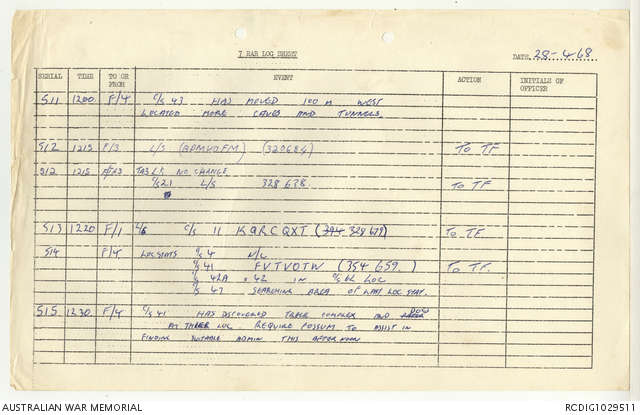 7 RAR LOG SHEET
DATE 28-4-68
SERIAL TIME TO OR FROM EVENT ACTION INITIALS OF OFFICER
511 1200 F/4 C/S 43 HAS MOVED 100 M WEST
LOCATED MORE CAVES AND TUNNELS
512 1215 F/3 L/S (BPMVOFM) (320684) To TF
512 1215 TABLR NO CHANGE
C/S 21 L/S 328 638. To TF
513 1220 F/1 L/S C/S 11 KQRCQXT (394 328 679) To TF
514 F/4 LOCSTATS C/S 4 N/C
C/S 41 FVTVOTW (354 659) To TF
C/S 42A + 42 IN LOC
C/S 43 SEARCHING AREA OF LAST LOC STAT.
515 1230 F/4 C/S 41 HAS DISCOVERED COMPLEX AND
AT THEIR LOC REQUIRE POSSUM TO ASSIST IN
FINDING SUITABLE ADMIN THIS AFTERNOON
AUSTRALIAN WAR MEMORIAL
RCDIG1029511